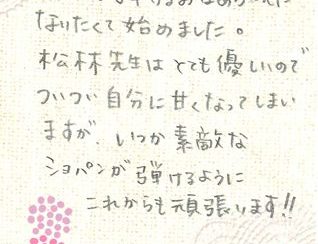 なりたくて始めました。
松林先生はとても優しいので
ついつい自分に甘くなってしまい
ますが、いつか素敵な
ショパンが弾けるように
これからも頑張います!!